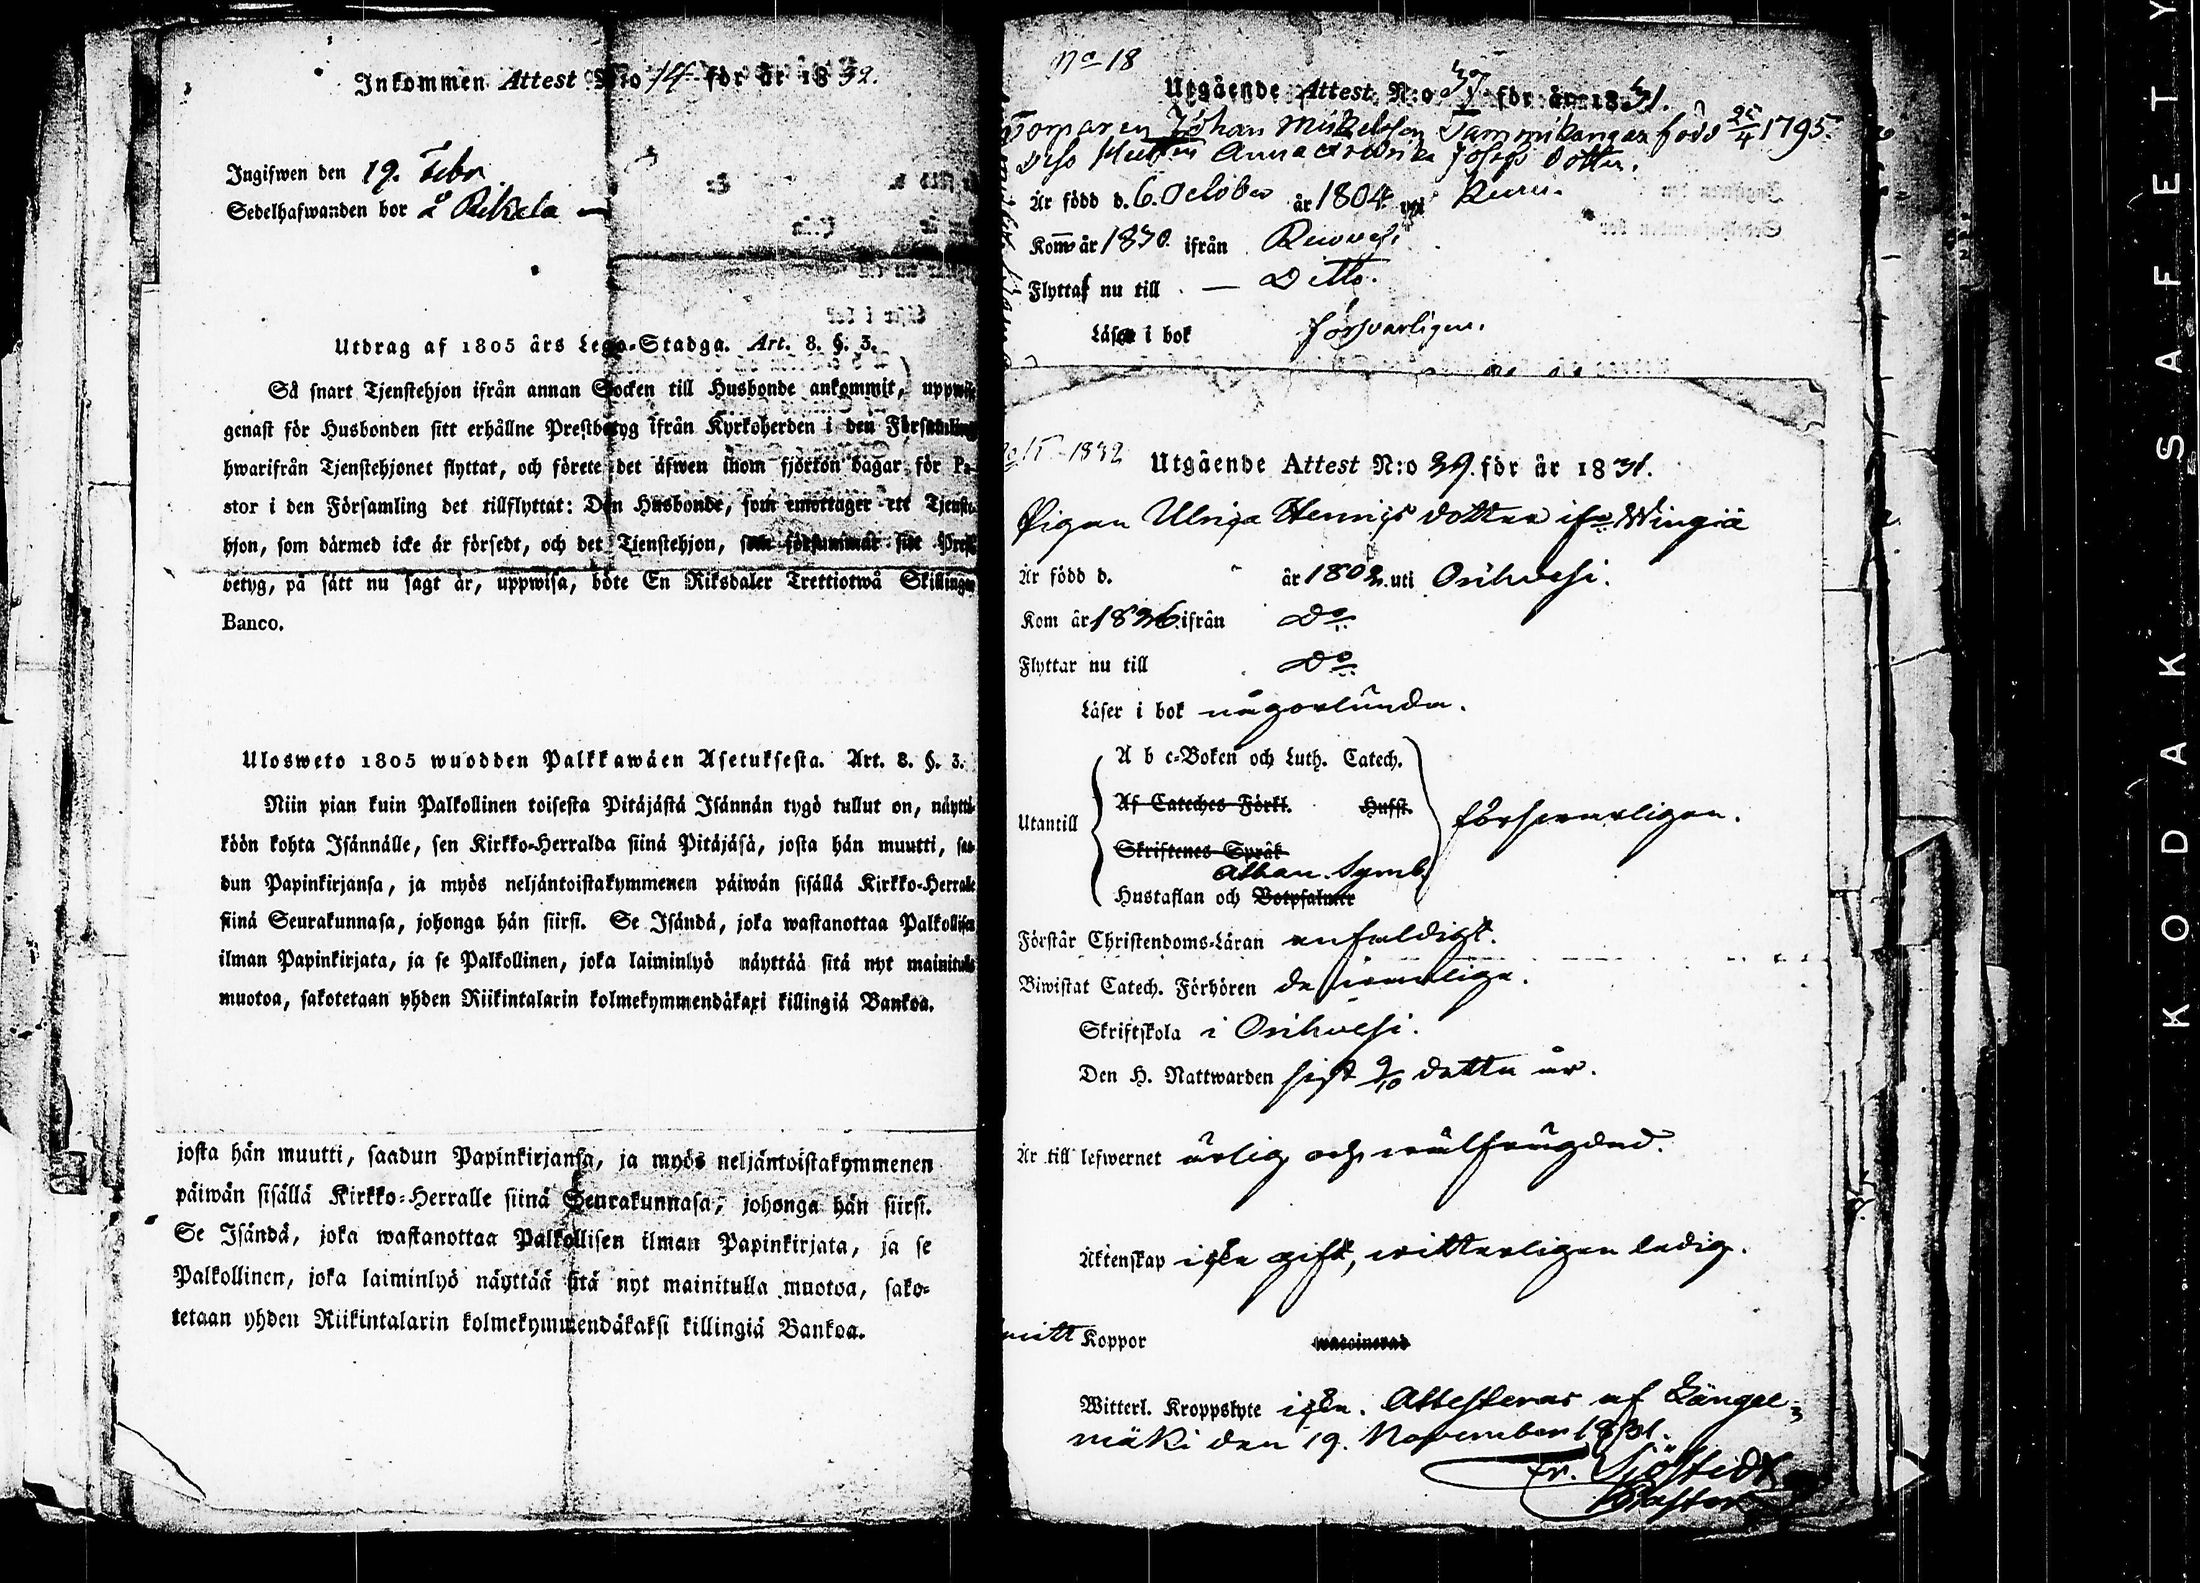 Inkommen Attest N:o 14 för år 1832.
Ingifwen den 19. Febr
Sedelhafwanden bor å Rikala
Utdrag af 1805 års Lego-Stadga. Art. 8. §. 3.
Så snart Tjenstehjon ifrån annan Socken till Husbonde ankommit, uppwise
genast för Husbonden sitt erhållne Prestbetyg ifrån Kyrkoherden i den Församling
hwarifrån Tjenstehjonet flyttat, och förete det äfwen inom fjorton dagar för Pa-
stor i den Församling det tillflyttat: Den Husbonde, som emottager ett Tjenste-
hjon, som därmed icke är försedt, och det Tjenstehjon, som försummar sitt Prest-
betyg, på sätt nu sagt är, uppwisa, böte En Riksdaler Trettiotwå Skillingar
Banco.
Ulosweto 1805 wuodden Palkkawäen Asetuksesta. Art. 8. §. 3.
Niin pian kuin Palkollinen toisesta Pitäjästä Isännän tygö tullut on, näyttä-
köön kohta Isännälle, sen Kirkko-Herralda siinä Pitäjäsä, josta hän muutti, saa-
dun Papinkirjansa, ja myös neljäntoistakymmenen päiwän sisällä Kirkko-Herralle
siinä Seurakunnasa, johonga hän siirsi. Se Isändä, joka wastanottaa Palkollisen
ilman Papinkirjata, ja se Palkollinen, joka laiminlyö näyttää sitä nyt mainitulla
muotoa, sakotetaan yhden Riikintalarin kolmekymmendäkaxi killingiä Bankoa.
josta hän muutti, saadun Papinkirjansa, ja myös neljäntoistakymmenen
päiwän sisällä Kirkko-Herralle siinä Seurakunnasa, johonga hän siirsi.
Se Isändä, joka wastanottaa Palkollisen ilman Papinkirjata, ja se
Palkollinen, joka laiminlyö näyttää sitä nyt mainitulla muotoa, sako-
tetaan yhden Riikintalarin kolmekymmendäkaksi killingiä Bankoa.
No 18
Utgående Attest N:o 37 för år 1831.
Johan Mickelsson Tammikangas född 25/4 1795.
Dess Hustru Anna Josephs dotter.
Är född d. 6. October år 1804
Kom år 1830. ifrån Ruovesi
Flyttat nu till — Ditto.
Läser i bok försvarligen.
15 - 1832 Utgående Attest N:o 39. för år 1831.
Pigan Ulrica Hennigs dotter ifr. Wingiä
Är född d. år 1802. uti Orihvesi.
Kom år 1826. ifrån Do
Flyttar nu till Do
Läser i bok någorlunda.
A b c-Boken och Luth. Catech.
Af Cateches Förkl. Hufst.
Utantill försvarligen.
Skriftenes Språk
Athan. Symb.
Hustaflan och Botpsalmer
Förstår Christendoms-Läran enfaldigt.
Biwistat Catech. Förhören
Skriftskola i Orihvesi.
Den H. Nattwarden sist 9/10 detta år.
Är till lefwernet ärlig och wälfrägdad.
Äktenskap icke gift, witterligen ledig.
Koppor waccinerad
Witterl. Kroppslyte icke. Attesteras af Längel-
mäki den 19. November 1831.
Fr. Sjöstedt
Pastor